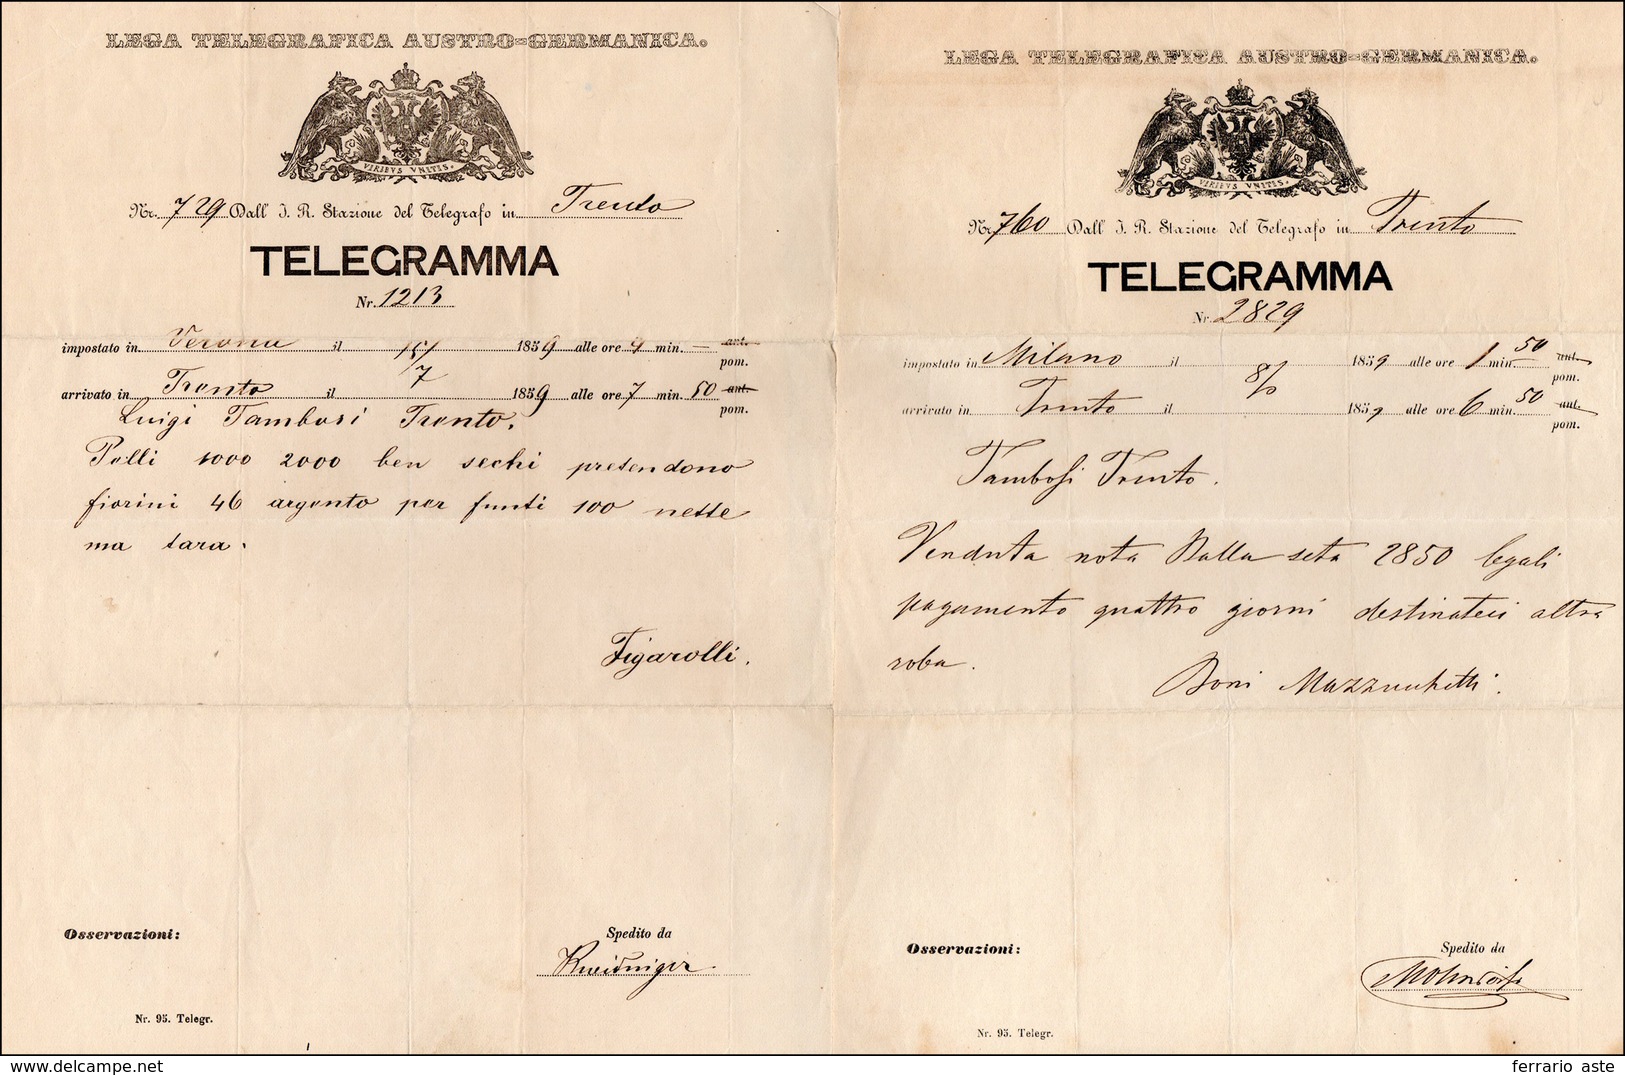 LEGA TELEGRAFICA AUSTRO-GERMANICA.
VIRIBVS VNITIS.
Nr. 729 Dall' I. R. Stazione del Telegrafo in Trento
TELEGRAMMA
Nr. 1213
impostato in Verona il 15/7 1859 alle ore 4 min. — ant. pom.
arrivato in Trento il 1859 alle ore 7 min. 50 ant. pom.
Luigi Tambosi Trento.
Pelli 1000 2000 ben sechi pretendono
fiorini 46 argento per funti 100 nette
ma tara.
Figarolli.
Osservazioni:
Spedito da
Nr. 95. Telegr.
LEGA TELEGRAFICA AUSTRO-GERMANICA.
VIRIBVS VNITIS.
Nr. 760 Dall' I. R. Stazione del Telegrafo in Trento
TELEGRAMMA
Nr. 2829
impostato in Milano il 1859 alle ore 1 min. 50 ant. pom.
arrivato in Trento il 1859 alle ore 6 min. 50 ant. pom.
Tambosi Trento.
Venduta nota Balla seta 2850 legali
pagamento quattro giorni destinateci altra
roba.
Boni Mazzucchetti.
Osservazioni:
Spedito da
Nr. 95. Telegr.
delcampe.net
ferrario aste